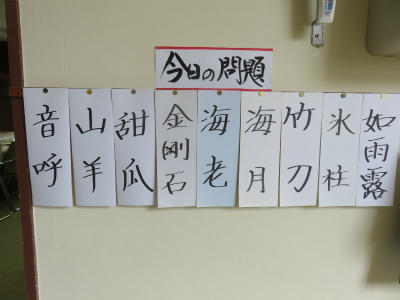 今日の問題
如雨露
氷柱
竹刀
海月
海老
金剛石
甜瓜
山羊
音呼